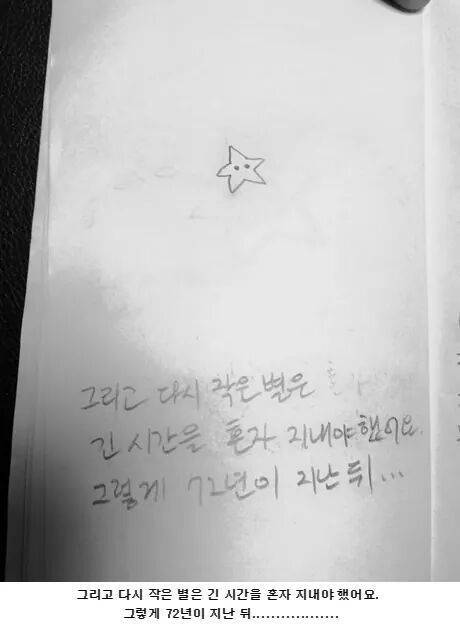 그리고 다시 작은 별은
긴 시간을 혼자 지내야 했어요.
그렇게 72년이 지난 뒤...
그리고 다시 작은 별은 긴 시간을 혼자 지내야 했어요.
그렇게 72년이 지난 뒤..................